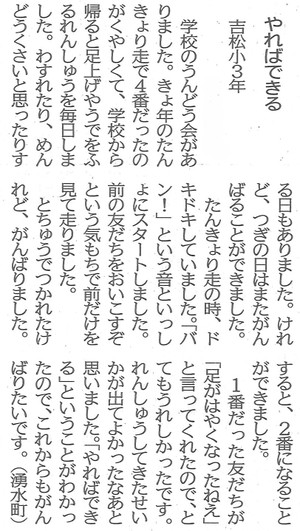 やればできる
吉松小3年
学校のうんどう会があ
りました。きょ年のたん
きょり走で4番だったの
がくやしくて、学校から
帰ると足上げやうでをふ
るれんしゅうを毎日しま
した。わすれたり、めん
どうくさいと思ったりす
る日もありました。けれ
ど、つぎの日はまたがん
ばることができました。
たんきょり走の時、ド
キドキしていました。「バ
ン！」という音といっし
ょにスタートしました。
前の友だちをおいこすぞ
という気もちで前だけを
見て走りました。
とちゅうでつかれたけ
れど、がんばりました。
すると、2番になること
ができました。
1番だった友だちが
「足がはやくなったねえ」
と言ってくれたので、と
てもうれしかったです。
れんしゅうしてきたせい
かが出てよかったなあと
思いました。「やればでき
る」ということがわかっ
たので、これからもがん
ばりたいです。（湧水町）